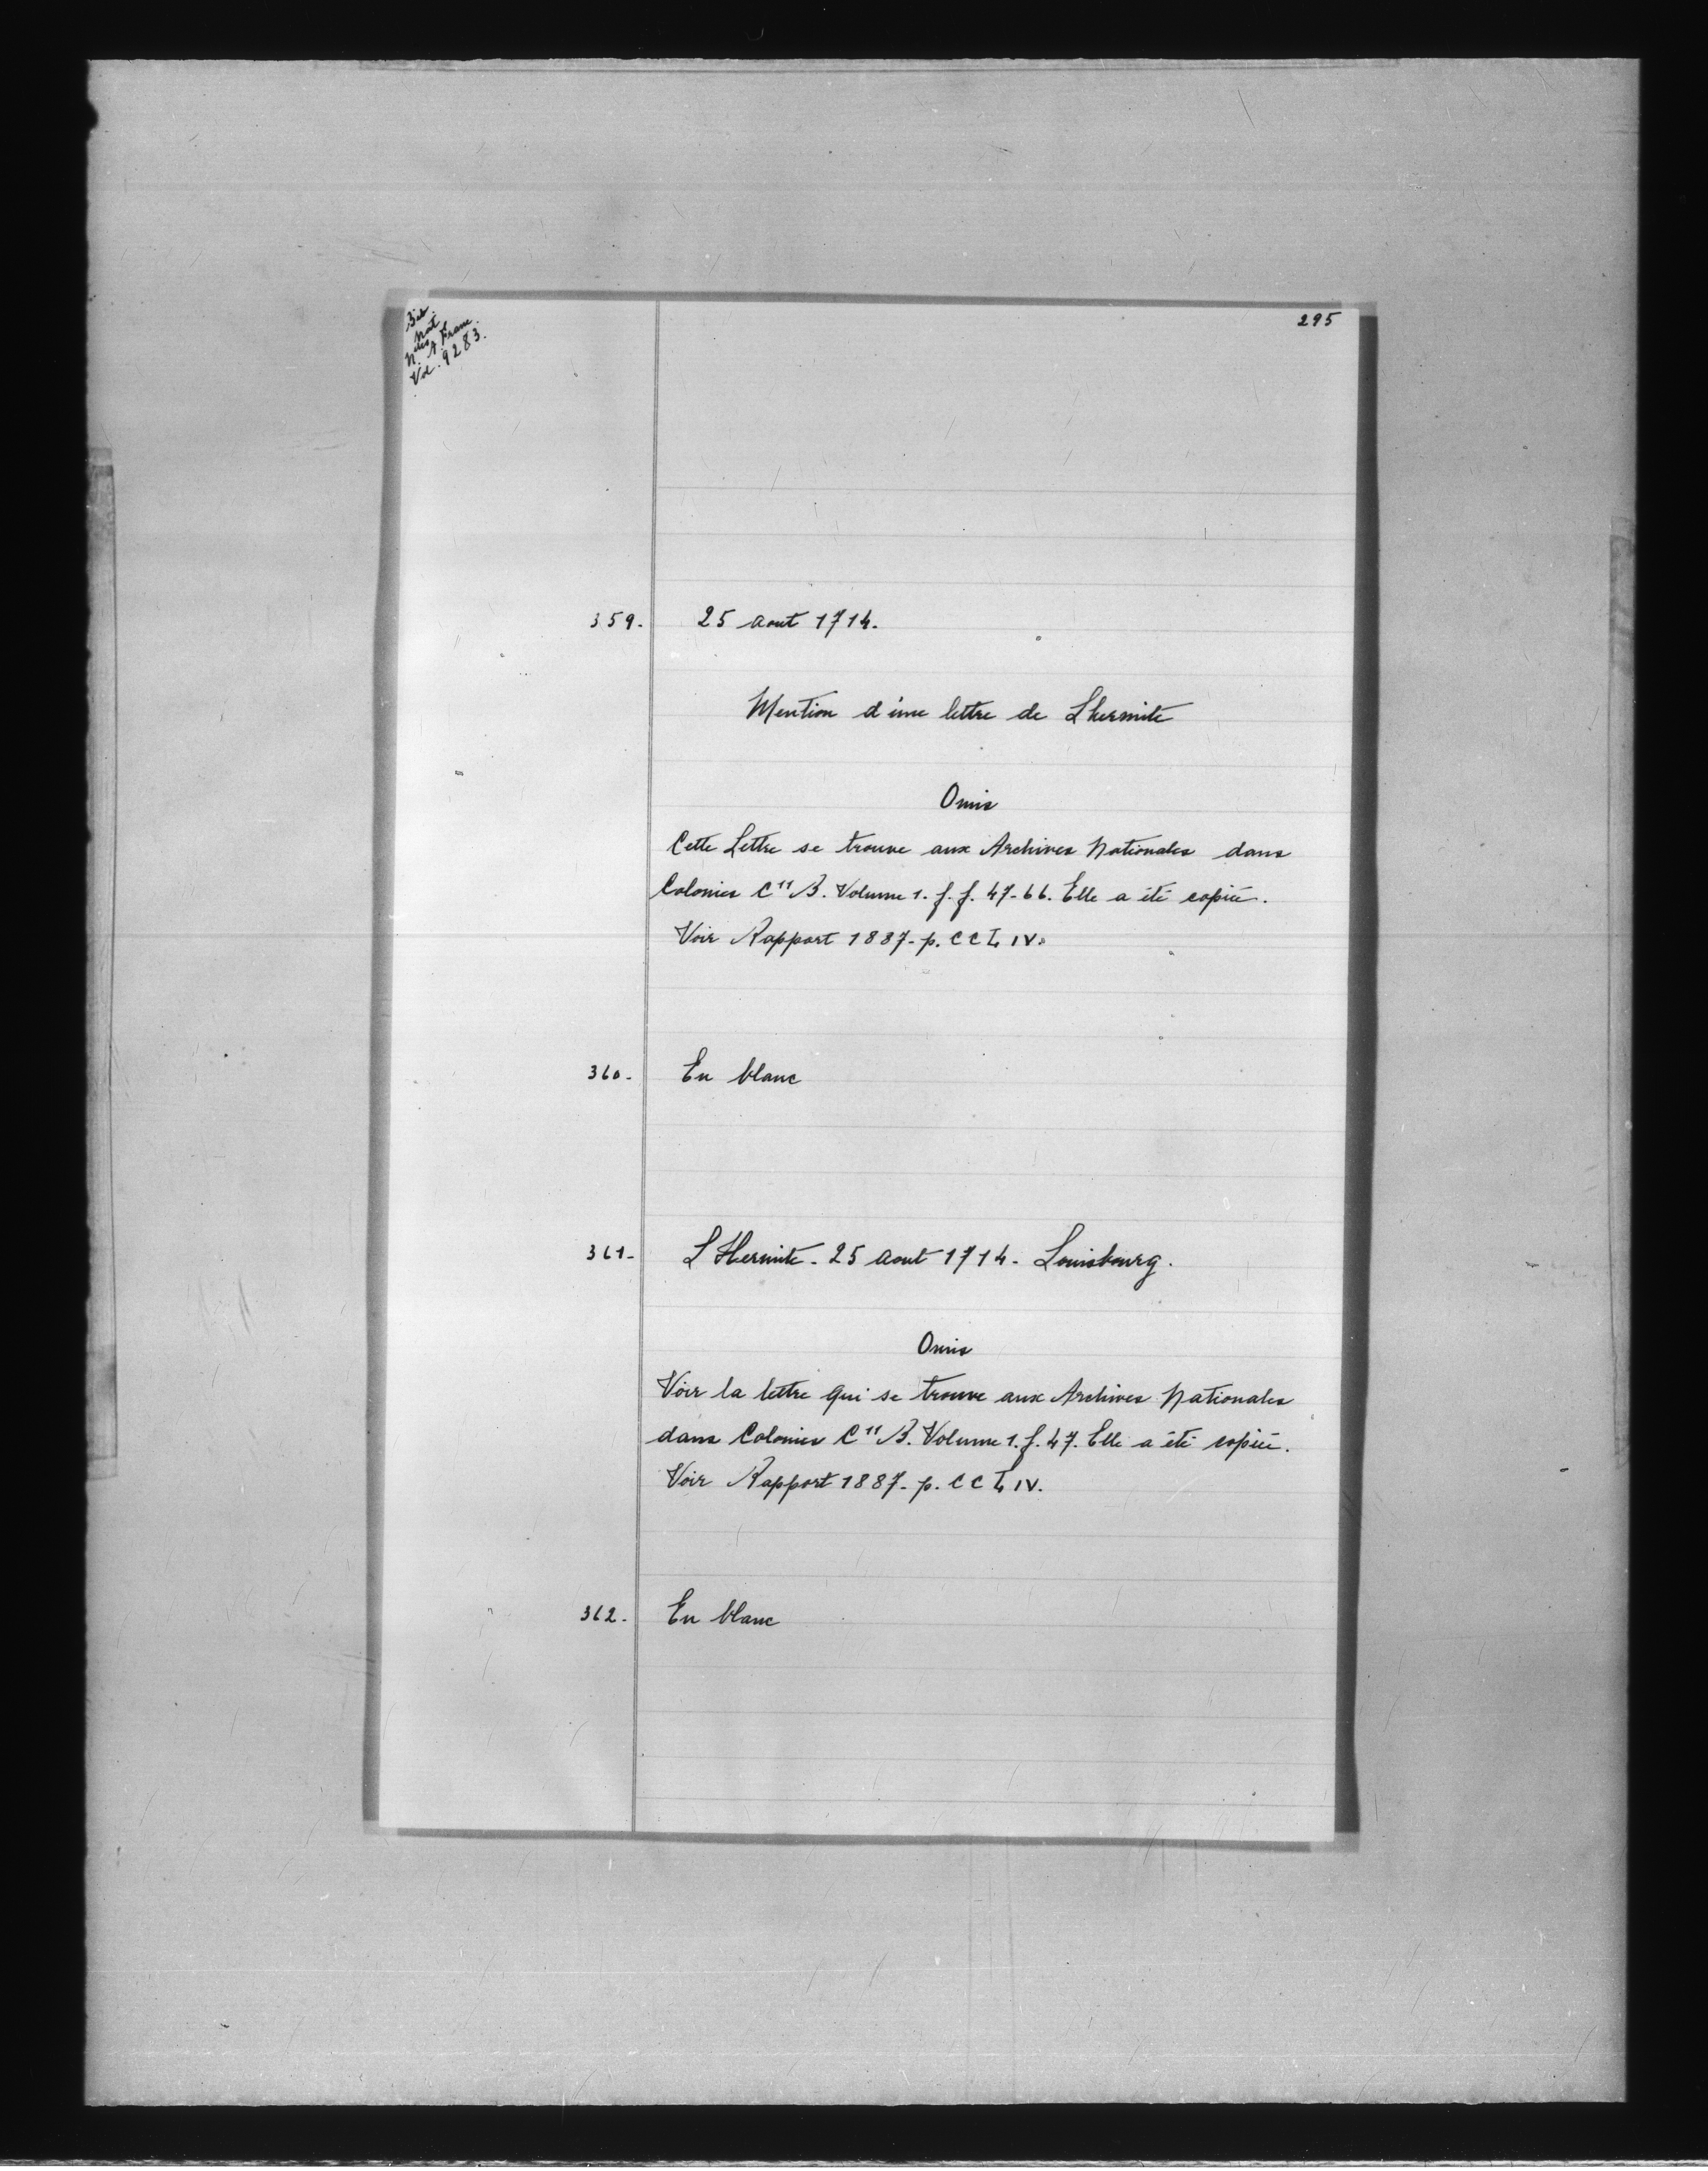 Bib.
Nat.
Mss
N. A. Franc.
Vol. 9283.
295
359. 25 aout 1714.
Mention d'une lettre de Lhermite
Omis
Cette Lettre se trouve aux Archives Nationales dans
Colonies C¹¹ B. Volume 1. f. f. 47-66. Elle a été copiée.
Voir Rapport 1887- p. CCLIV.
360. En blanc
361- L'Hermite - 25 aout 1714 - Louisbourg.
Omis
Voir la lettre qui se trouve aux Archives Nationales
dans Colonies C¹¹ B. Volume 1. f. 47. Elle a été copiée.
Voir Rapport 1887- p. CCLIV.
362. En blanc